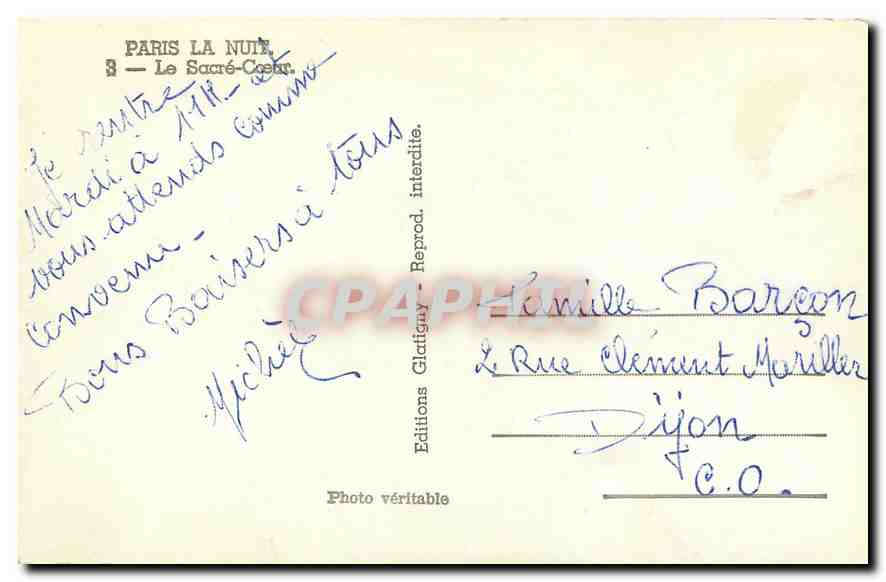 PARIS LA NUIT.
3 — Le Sacré-Cœur.
Je rentre
Mardi à 11H - et
vous attends comme
convenu -
Bons Baisers à tous
Michel
Editions Glatigny - Reprod. interdite.
CPAPHIL
Famille Barçon
2 Rue Clément Mariller
Dijon
C.O.
Photo véritable